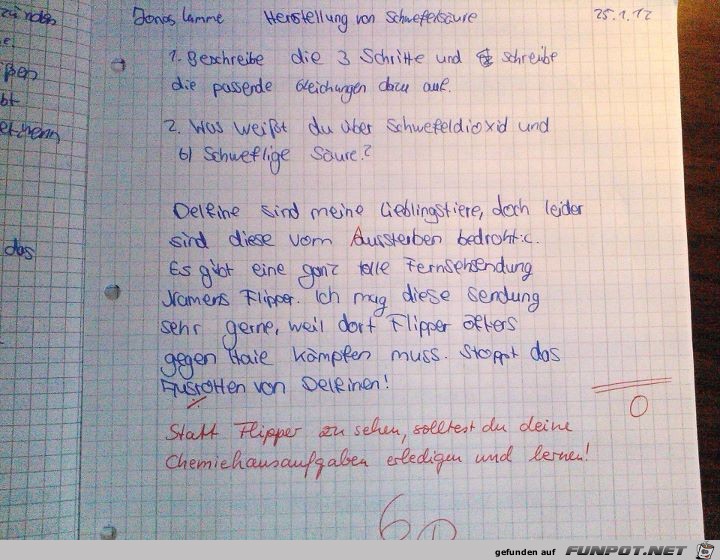 zünden
ßen
bt
das
Jonas Lamme Herstellung von Schwefelsäure 25.1.12
1. Beschreibe die 3 Schritte und schreibe
die passende Gleichungen dazu auf.
2. Was weißt du über Schwefeldioxid und
b) Schweflige Säure?
Delfine sind meine Lieblingstiere, doch leider
sind diese vom Aussterben bedroht :c.
Es gibt eine ganz tolle Fernsehsendung
Namens Flipper. Ich mag diese Sendung
sehr gerne, weil dort Flipper öfters
gegen Haie kämpfen muss. Stoppt das
Ausrotten von Delfinen!
0
Statt Flipper zu sehen, solltest du deine
Chemiehausaufgaben erledigen und lernen!
6
gefunden auf FUNPOT.NET